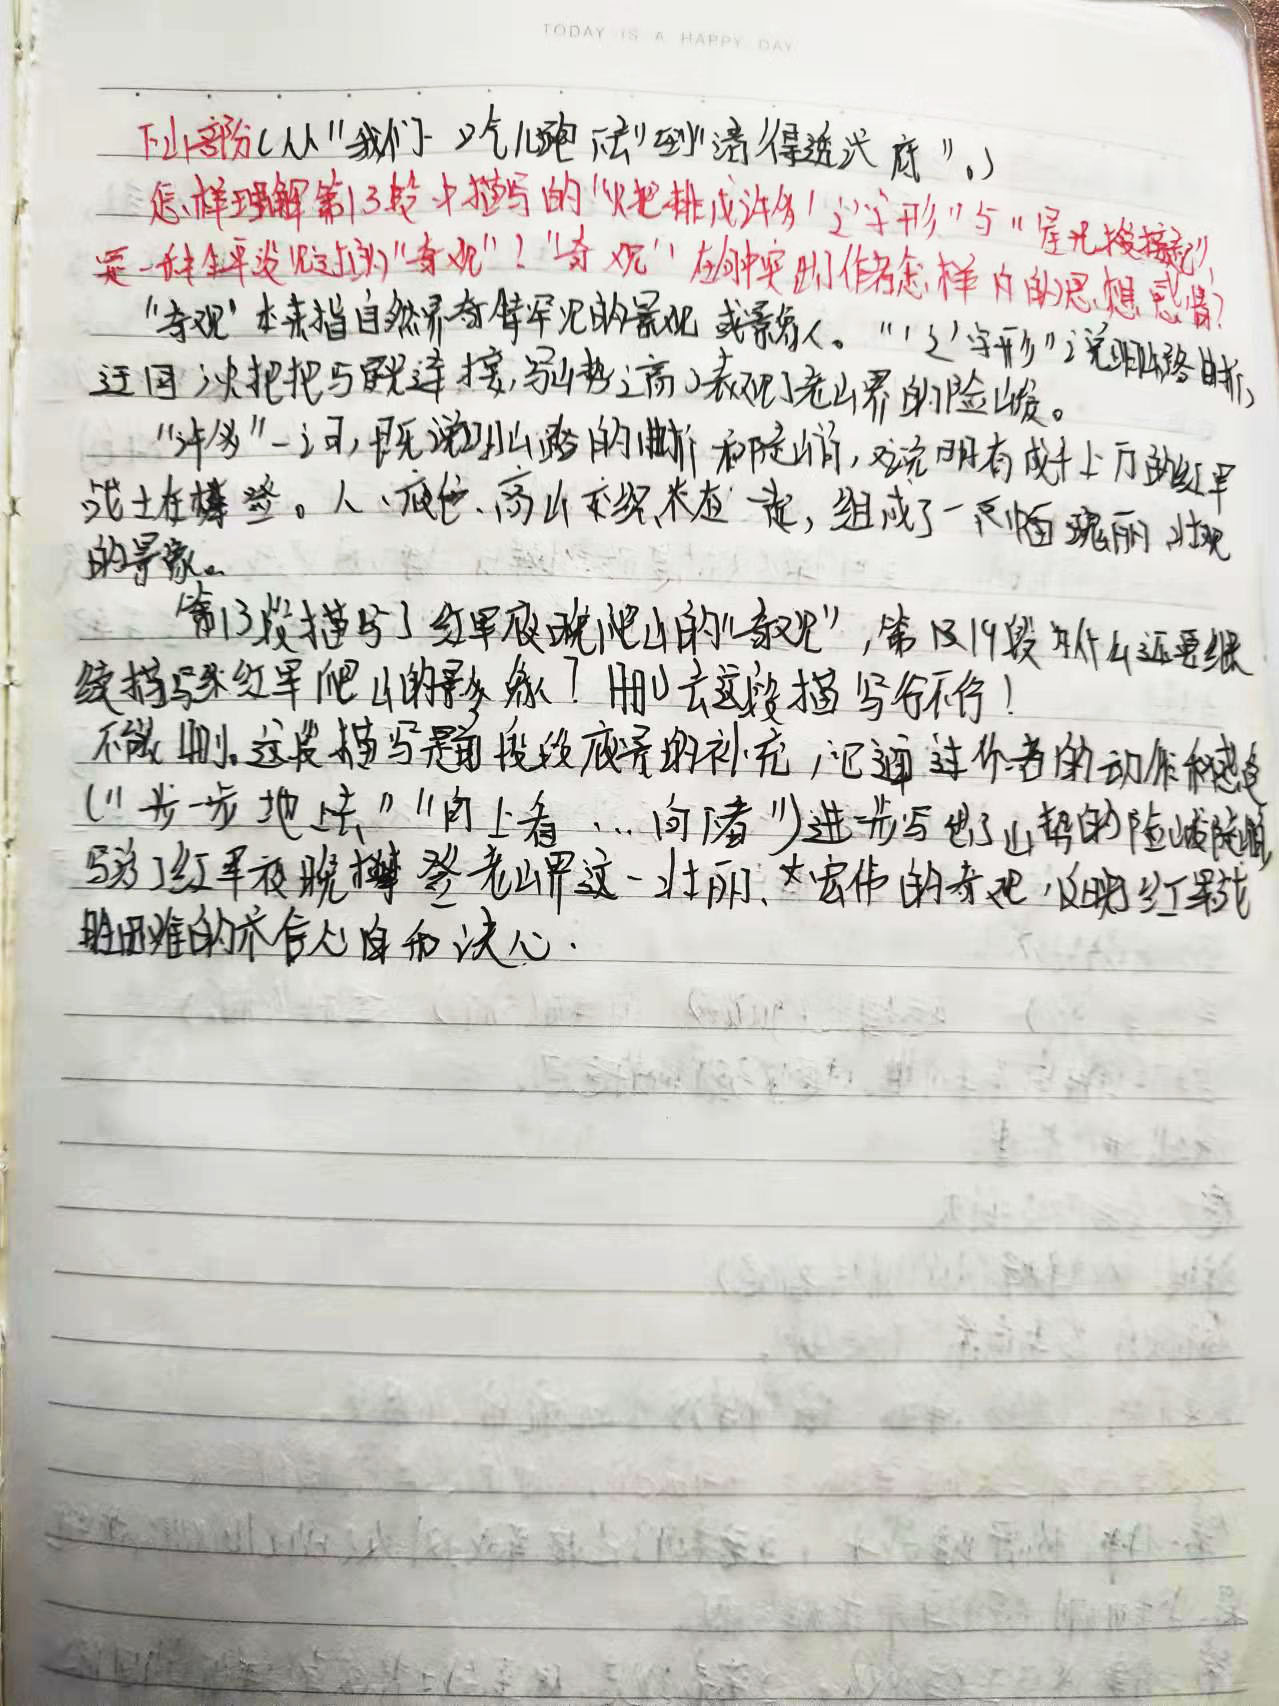 TODAY IS A HAPPY DAY
下山部份(从"我们一口气儿跑下去"到"清得透沏底"。)
怎样理解第13段中描写的"火把排成许多'之'字形"与"星光接接起",
是一种生平没见过的"奇观"?"奇观"在句中突出了作者怎样的思想感情?
"奇观"本来指自然界奇特罕见的景观或景象。"'之'字形"说明山路曲折,
迂回火把把与星光连接,写山势之高表现了老山界的险峻。
"许多"一词,既说明山路的曲折和陡峭,又说明有成千上万的红军
战士在攀登。人、夜色、高山交织在一起,组成了一幅瑰丽壮观
的景象。
第13段描写了红军夜晚爬山的"奇观",第19段为什么还要继
续描写红军爬山的景象?删去这段描写行不行?
不能删。这段描写是前段夜景的补充,它通过作者的动作和感受
("一步一步地上去""向上看…向下看")进一步写出了山势的险峻陡峭,
写出了红军夜晚攀登老山界这一壮丽、宏伟的奇观,反映红军战
胜困难的信心和决心.